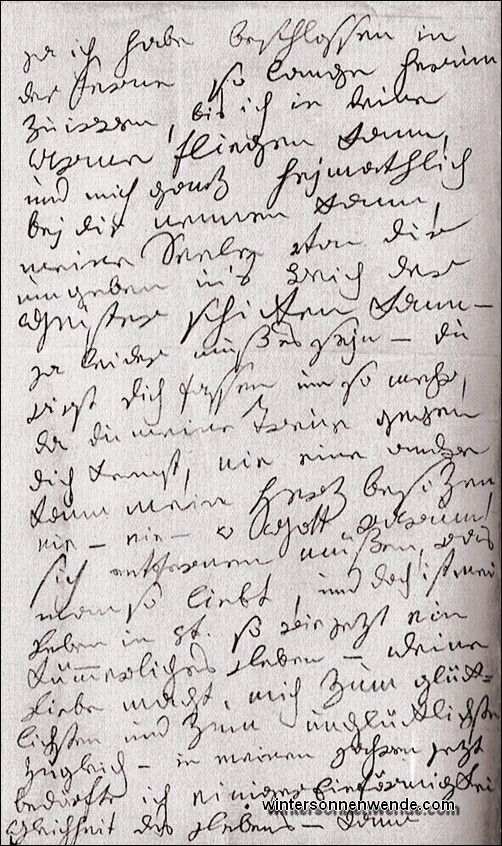 ja ich habe beschlossen in
der Ferne so lange herum
zu irren, bis ich in deine
Arme fliegen kann,
und mich ganz heymathlich
bej dir nennen kann,
meine Seele von dir
umgeben in's Reich der
Geister schicken kann —
ja leider muß es seyn — du
wirst dich fassen um so mehr,
da du meine Treue gegen
dich kennst, nie eine andre
kann mein Herz besizen,
nie — nie — o Gott warum
sich entfernen müßen, was
man so liebt, und doch ist mein
Leben in so wie jezt ein
kümmerliches Leben — Deine
Liebe macht mich zum glück-
lichsten und zum unglücklichsten
zugleich — in meinen Jahren jezt
bedürfte ich einiger Einförmigkei
Gleichheit des Lebens — kann
wintersonnenwende.com